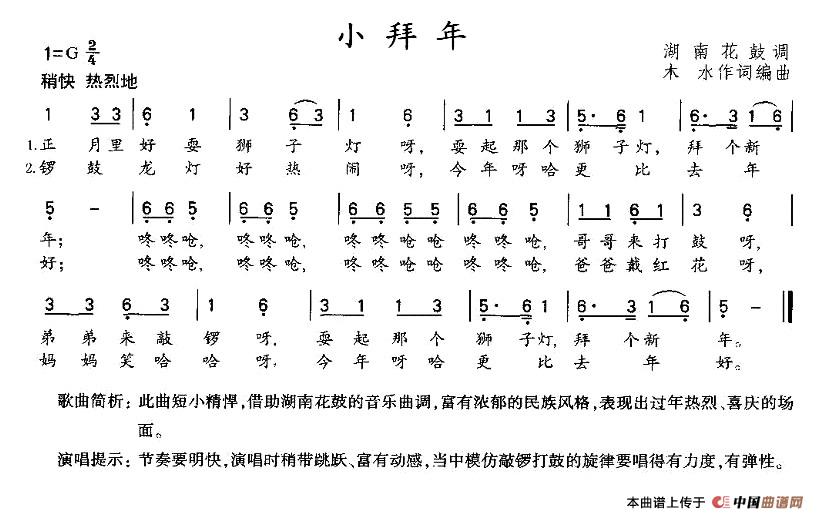 小拜年
1=G 2/4
湖南花鼓调
稍快 热烈地
木 水作词编曲
1 3 3 | 6 1 | 3 6 3 | 1 6 | 3 1 1 1 3 | 5· 6 1 | 6· 3 1 6 |
1.正 月里好耍 狮子 灯呀, 耍起那个 狮子灯, 拜个新
2.锣 鼓 龙灯 好热 闹呀, 今年呀哈 更比去 年
5 - | 6 6 5 | 6 6 5 | 6 6 5 5 | 6 6 5 | 1 1 6 1 | 3 6 |
年; 咚咚呛, 咚咚呛, 咚咚呛呛 咚咚呛, 哥哥来打 鼓呀,
好; 咚咚呛, 咚咚呛, 咚咚呛呛 咚咚呛, 爸爸戴红 花呀,
3 3 6 3 | 1 6 | 3 1 1 3 | 5· 6 1 | 6· 3 1 6 | 5 - ‖
弟弟来敲 锣呀, 耍起那个 狮子灯, 拜个新 年。
妈妈笑哈 哈呀, 今年呀哈 更比去 年 好。
歌曲简析:此曲短小精悍,借助湖南花鼓的音乐曲调,富有浓郁的民族风格,表现出过年热烈、喜庆的场
面。
演唱提示:节奏要明快,演唱时稍带跳跃、富有动感,当中模仿敲锣打鼓的旋律要唱得有力度,有弹性。
本曲谱上传于 中国曲谱网